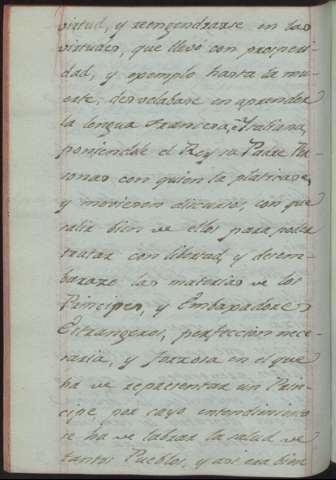 virtud, y reengendrarse en las
virtudes, que llevó con prosperi
dad, y exemplo hasta la mu
erte; desvelabase en aprender
la lengua Francesa, è Italiana,
poniendole el Rey su Padre Per
sonas con quien la platicase,
y moviesen discursos, con que
salir bien de ellos para poder
tratar con libertad, y desem
barazo las materias de los
Principes, y Embaxadores
Estrangeros, perfeccion nece
saria, y forzosa en el que
ha de representar un Prin
cipe, por cuyo entendimiento
se ha de labrar la salud de
tantos Pueblos, y asi era bien